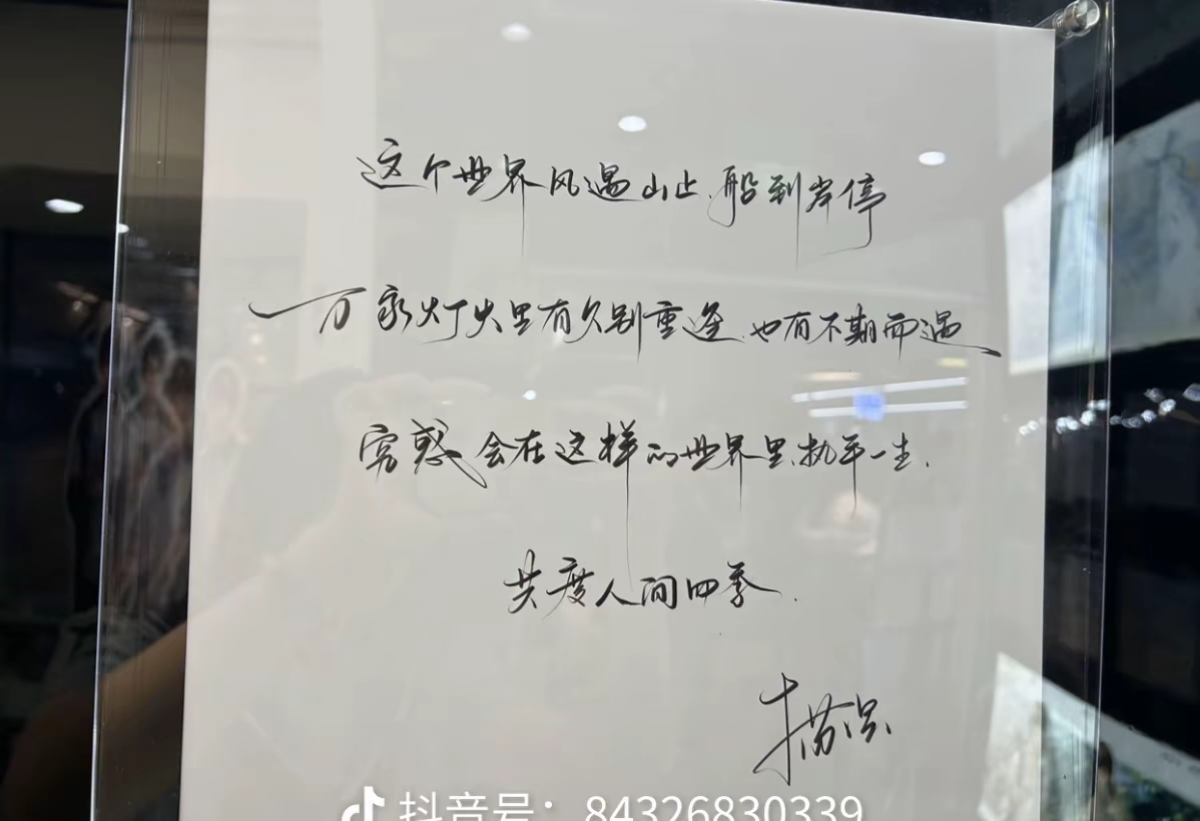 这个世界风遇山止、船到岸停
万家灯火里有久别重逢、也有不期而遇
究惑会在这样的世界里、执手一生.
共度人间四季.
木苏里
抖音号：84326830339